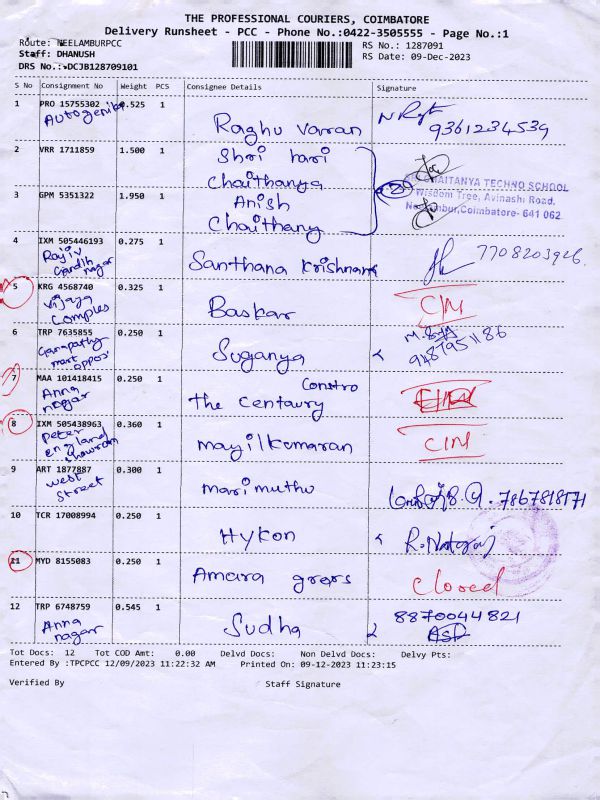 THE PROFESSIONAL COURIERS, COIMBATORE
Delivery Runsheet - PCC - Phone No.:0422-3505555 - Page No.:1
Route: NEELAMBURPCC
RS No.: 1287091
Staff: DHANUSH
RS Date: 09-Dec-2023
DRS No.: DCJB128709101
S No Consignment No Weight PCS Consignee Details Signature
1 PRO 15755302 0.525 1 Raghu varran
9361234539
2 VRR 1711859 1.500 1 Shri hari
Chaithanya
CHAITANYA TECHNO SCHOOL
Wisdom Tree, Avinashi Road,
Coimbatore- 641 062
3 GPM 5351322 1.950 1 Anish
Chaithany
4 IXM 505446193 0.275 1 Santhana Krishnan 7708203926
Rajiv
Gandhi
nagar
5 KRG 4568740 0.325 1 Baskar CIM
vijaya
Comples
6 TRP 7635855 0.250 1 Suganya
Ganapathy
mart
oppos
7 MAA 101418415 0.250 1 The Centaury Constro
Anna
nagar
8 IXM 505438963 0.360 1 mayilkumaran CIM
Peter
england
showrom
9 ART 1877887 0.300 1 marimuthu 7867818171
west
street
10 TCR 17008994 0.250 1 Hykon R. Nataraj
11 MYD 8155083 0.250 1 Amara Closed
12 TRP 6748759 0.545 1 Sudha 8870044821
Anna
nagar
Tot Docs: 12 Tot COD Amt: 0.00 Delvd Docs: Non Delvd Docs: Delvy Pts:
Entered By :TPCPCC 12/09/2023 11:22:32 AM Printed On: 09-12-2023 11:23:15
Verified By Staff Signature